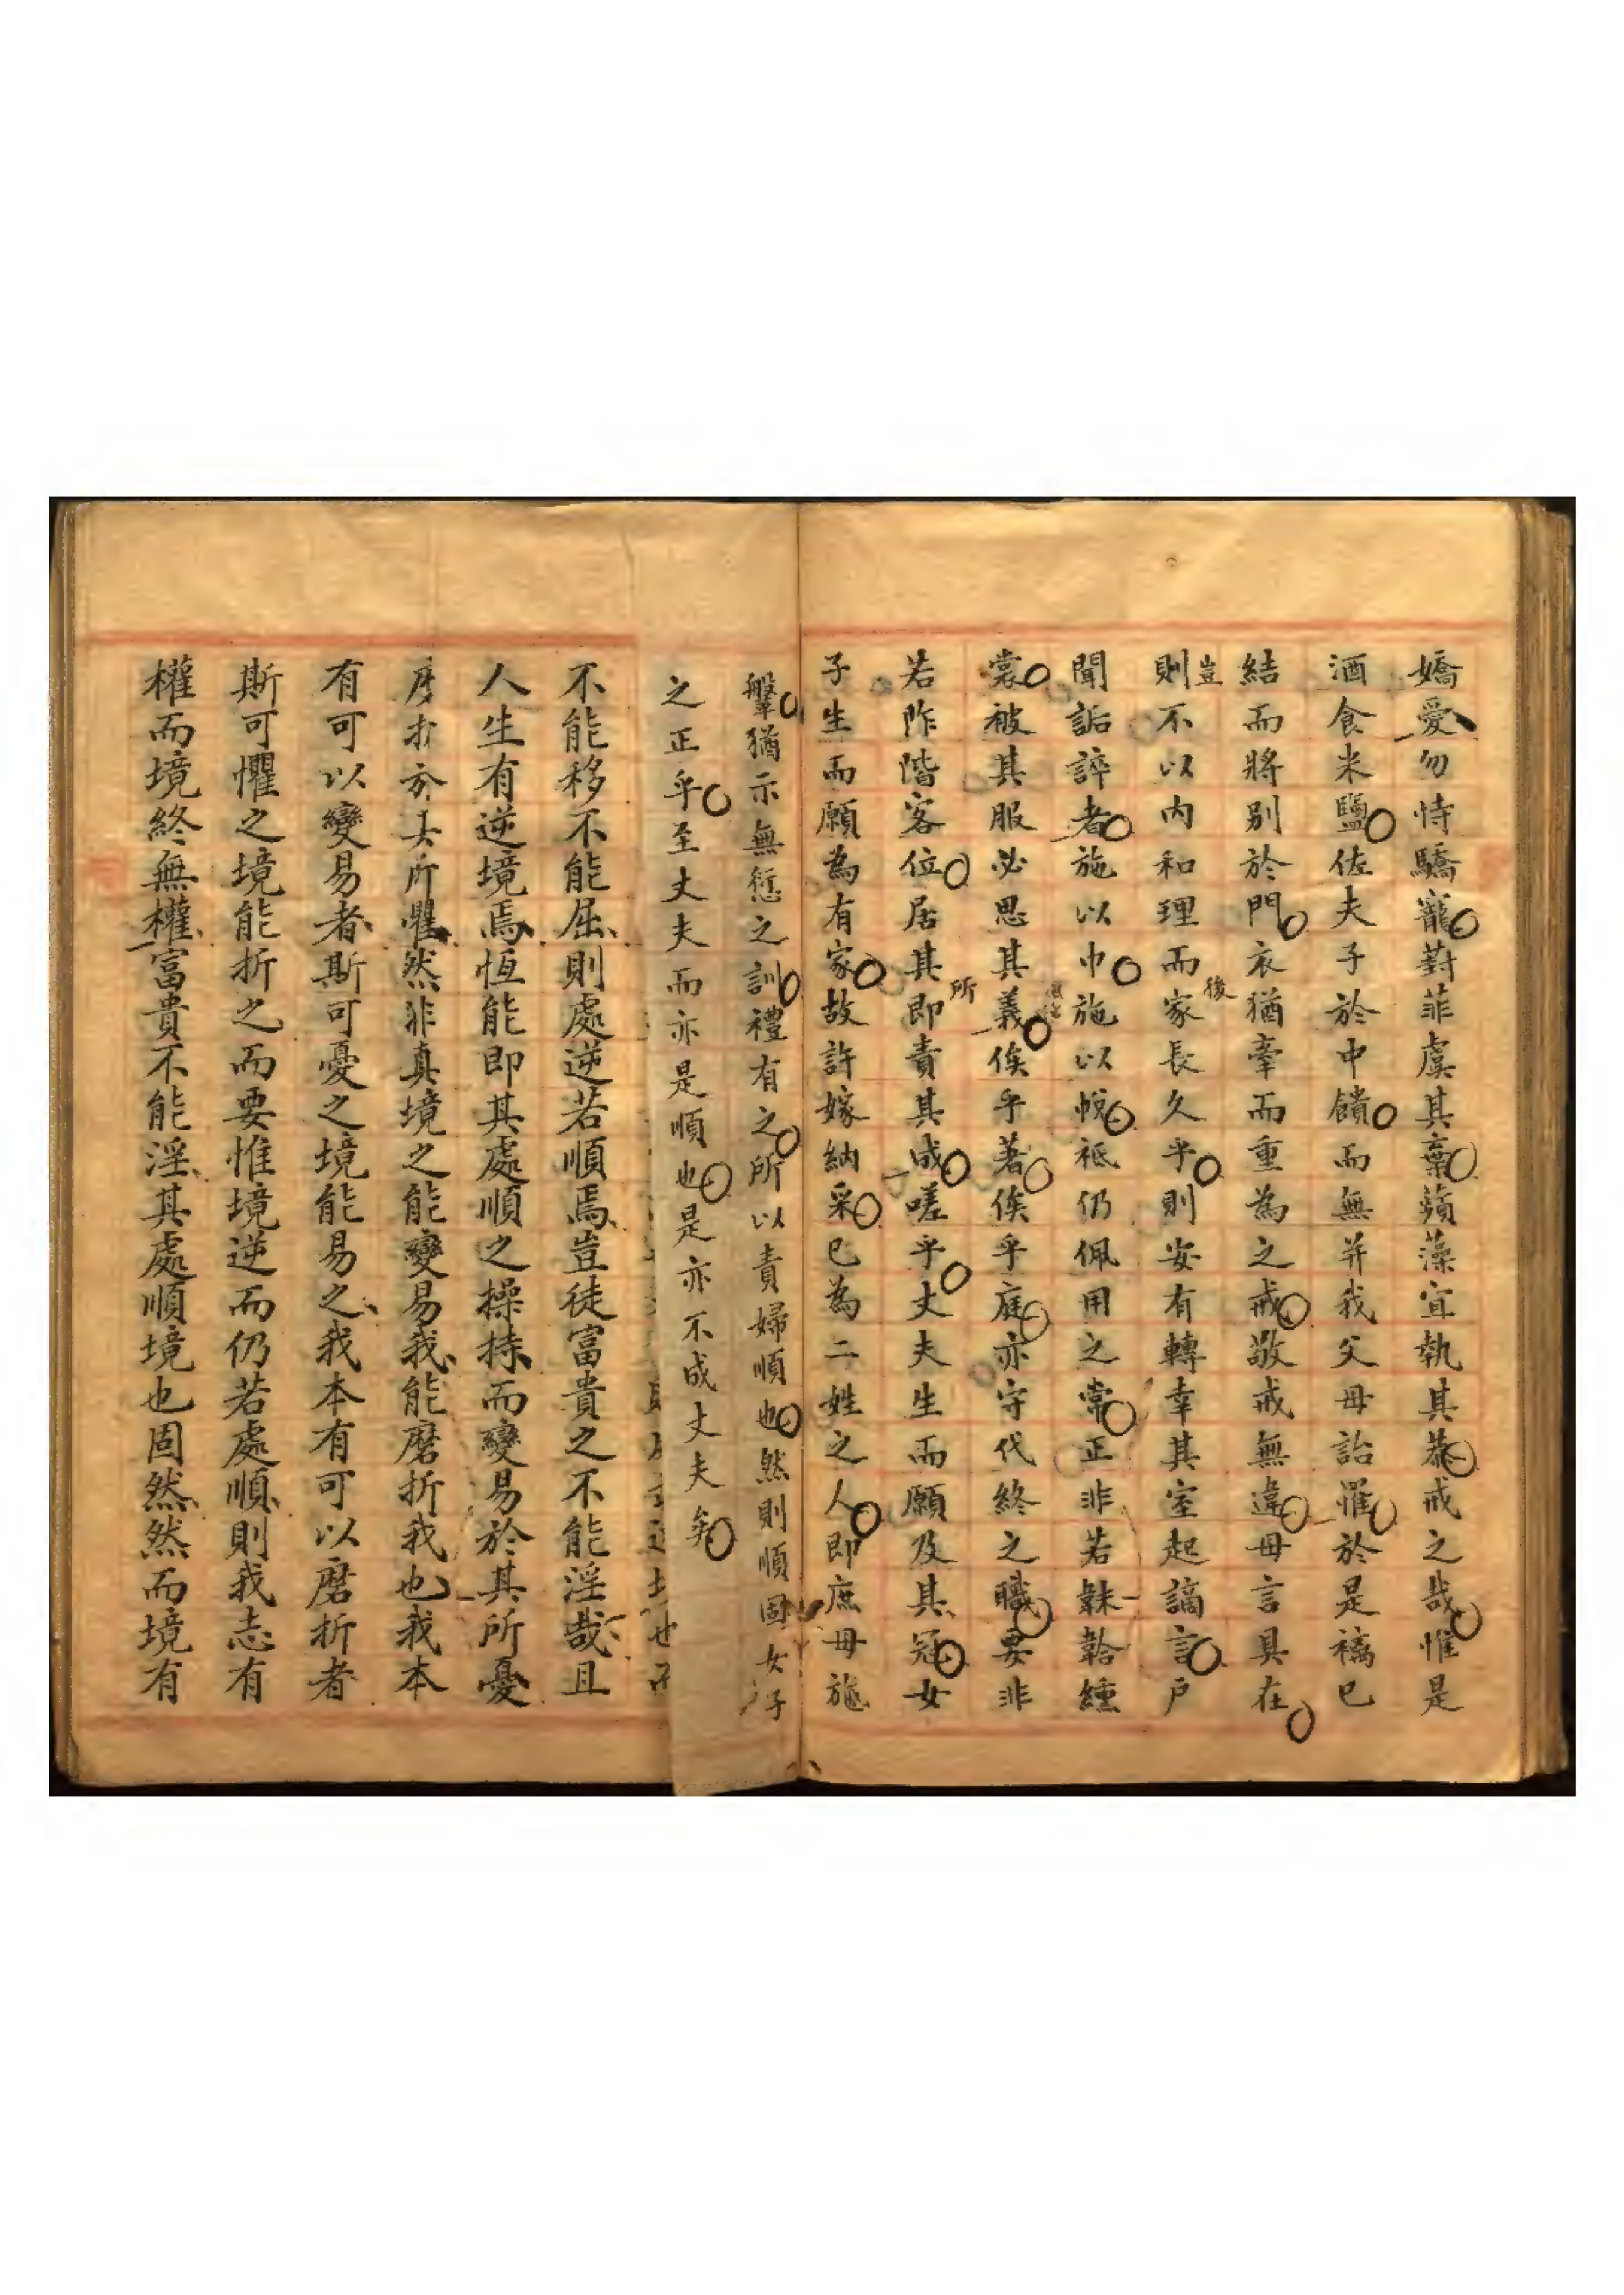 嬌愛勿恃驕寵葑菲虞其棄蘋藻宜執其恭戒之哉惟是
酒食米鹽佐夫子於中饋而無并我父母詒罹於是褵已
結而將別於門衣猶牽而重為之戒敬戒無違母言具在
豈
則不以內和理而家長久乎則安有轉幸其室起謫言戶
後
聞詬誶者施以巾施以帨祗仍佩用之常正非若韎韐纁
裳被其服必思其義俟乎著俟乎庭亦守代終之職要非
若阼階客位居其即責其成嗟乎丈夫生而願及其冠女
所
子生而願為有家故許嫁納采已為二姓之人即庶母施
鞶猶示無愆之訓禮有之所以責婦順也然則順固女子
之正乎至丈夫而亦是順也是亦不成丈夫矣
不能移不能屈則處逆若順焉豈徒富貴之不能淫哉且
人生有逆境焉恆能即其處順之操持而變易於其所憂
所懼然非真境之能變易我能磨折我也我本
有可以變易者斯可憂之境能易之我本有可以磨折者
斯可懼之境能折之而要惟境逆而仍若處順則我志有
權而境終無權富貴不能淫其處順境也固然然而境有